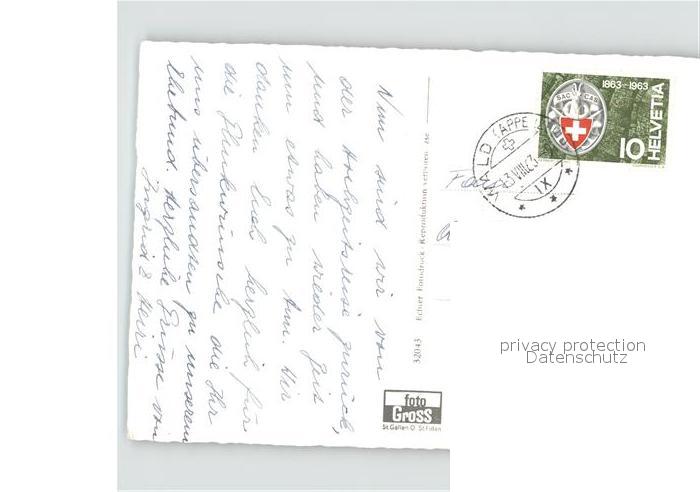 Nun sind wir von
der Hochzeitsreise zurück,
und haben wieder Zeit
um etwas zu tun. Wir
danken Euch herzlich für
die Glückwünsche die Ihr
uns übersandten zu unserem
Ehebund. Herzliche Grüsse von
Ingrid & Heiri
32043 Echter Fotodruck - Reproduktion verboten
foto
Gross
St.Gallen O St.Fiden
1863-1963
SAC CAS
HELVETIA
10
WALD (APPE
13.VIII.63
IX
privacy protection
Datenschutz